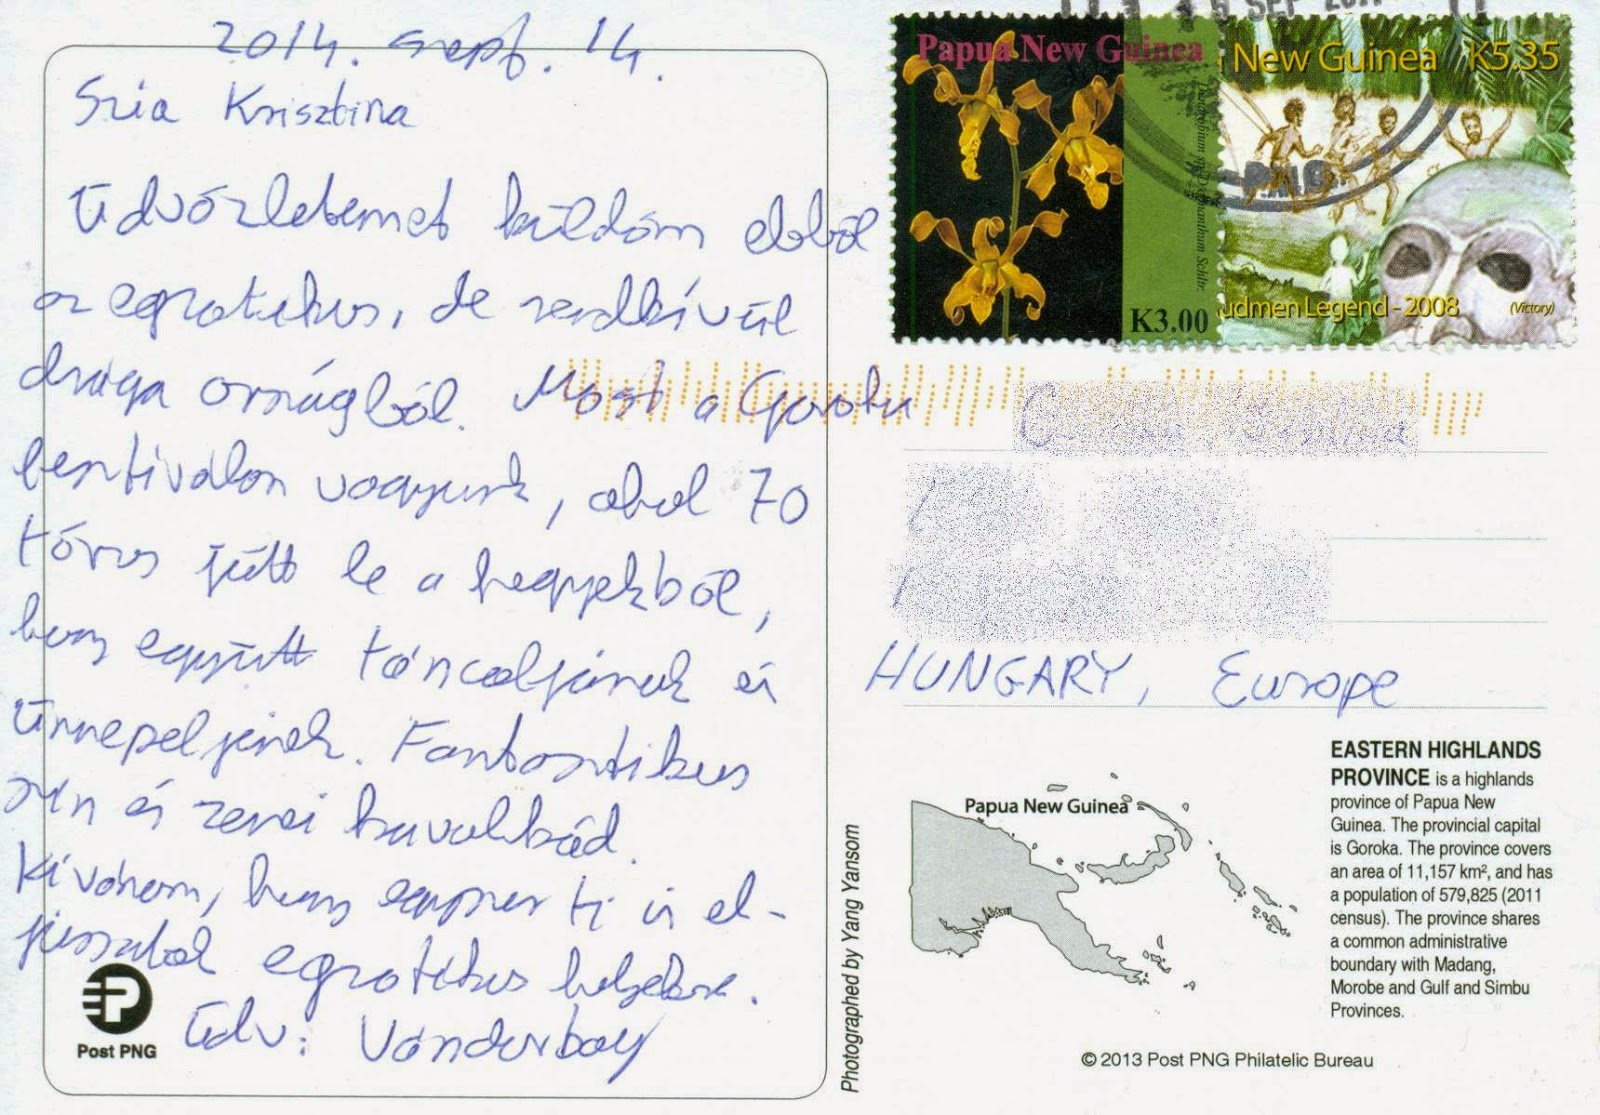 2014. szept. 14.
Szia Krisztina
Üdvözletemet küldöm ebből
az egzotikus, de rendkívül
drága országból. Most a Goroka
fesztiválon vagyunk, ahol 70
törzs jött le a hegyekből,
hogy együtt táncoljanak és
ünnepeljenek. Fantasztikus
szín és zenei kavalkád.
Kívánom, hogy egyszer ti is el-
jussatok egzotikus helyekre.
Üdv: Vándorboy
Post PNG
Papua New Guinea
K3.00
New Guinea K5.35
udmen Legend - 2008 (Victory)
SEP
HUNGARY, Europe
Papua New Guinea
EASTERN HIGHLANDS
PROVINCE is a highlands
province of Papua New
Guinea. The provincial capital
is Goroka. The province covers
an area of 11,157 km², and has
a population of 579,825 (2011
census). The province shares
a common administrative
boundary with Madang,
Morobe and Gulf and Simbu
Provinces.
Photographed by Yang Yansom
© 2013 Post PNG Philatelic Bureau